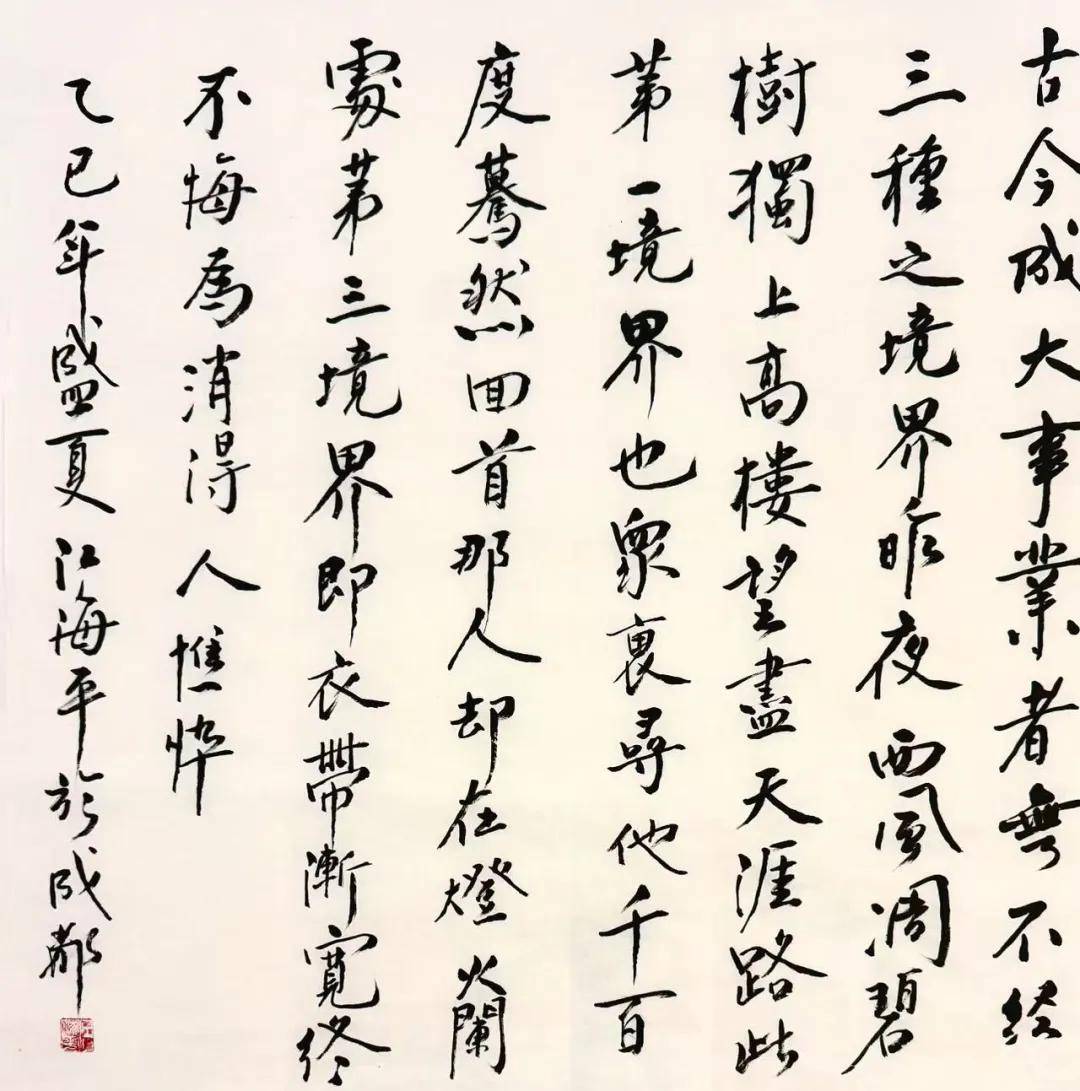 古今成大事業者無不经
三種之境界昨夜西風凋碧
樹獨上高樓望盡天涯路此
第一境界也衆裏尋他千百
度驀然回首那人却在燈火闌
處第三境界即衣帶漸寬终
不悔為消得人憔悴
乙巳年盛夏江海平於成都